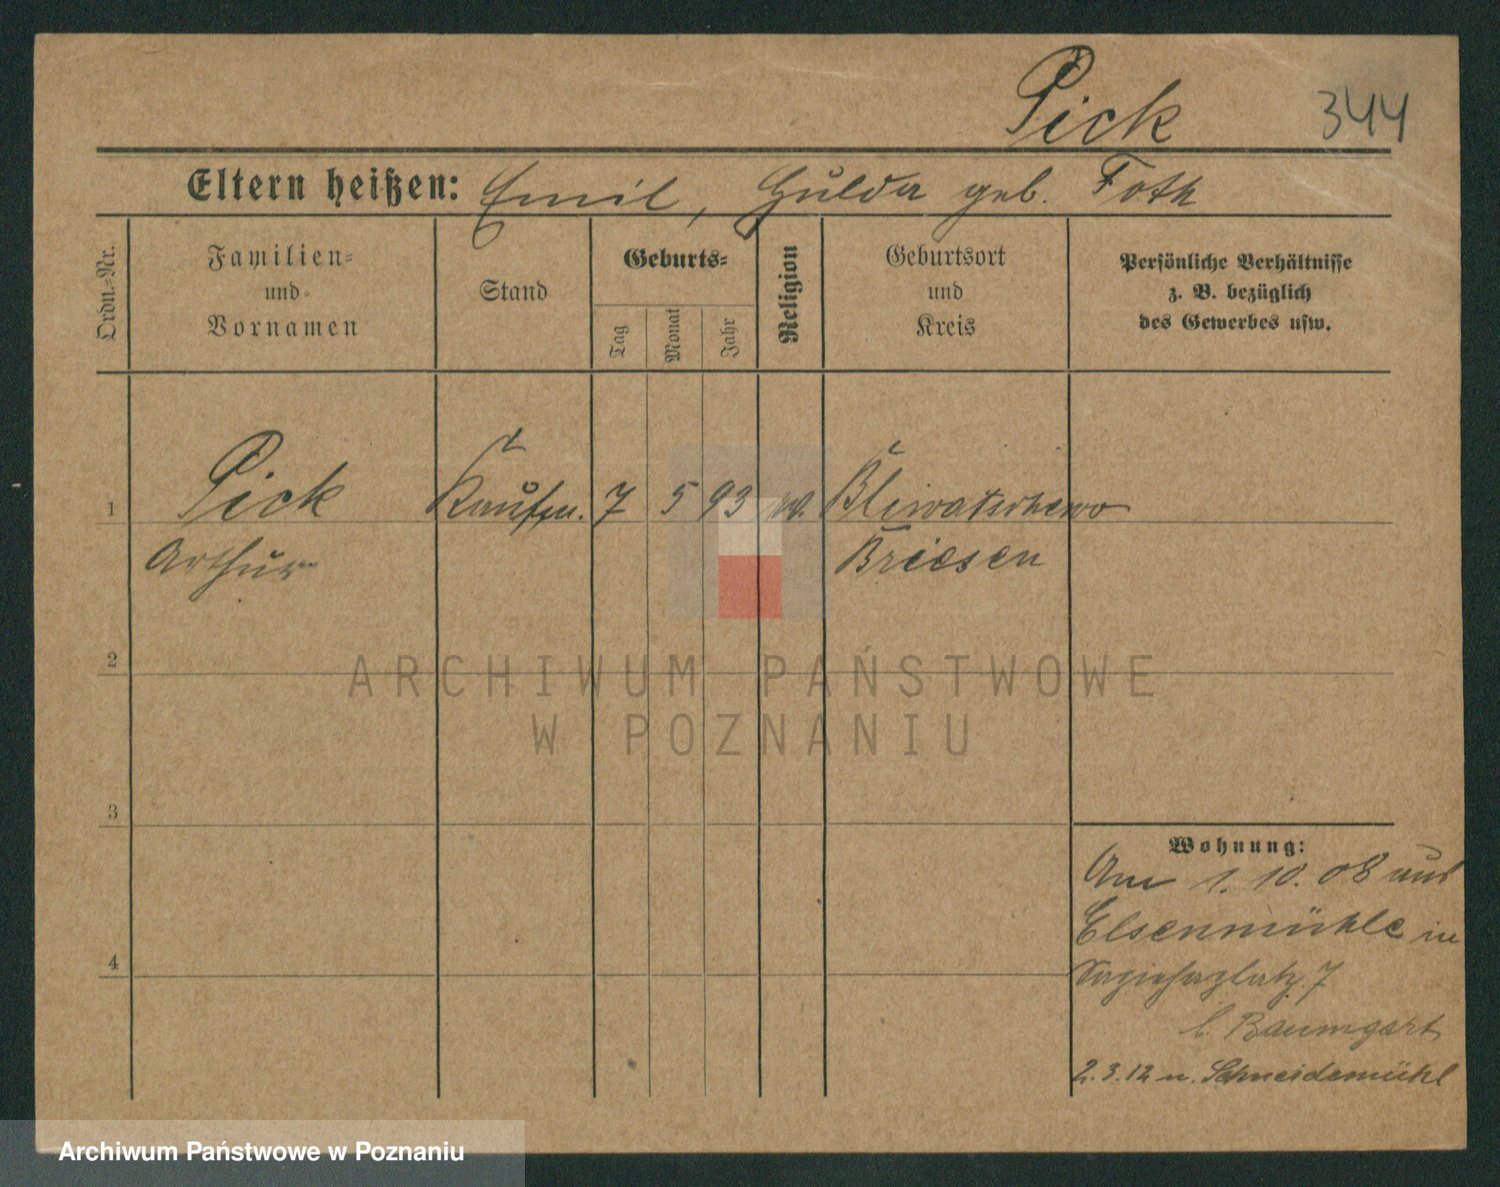 Pick 344
Eltern heißen: Emil, Hulda geb. Foth
Ordn.-Nr.
Familien-
und
Vornamen
Stand
Geburts-
Tag
Monat
Jahr
Religion
Geburtsort
und
Kreis
Persönliche Verhältnisse
z. B. bezüglich
des Gewerbes usw.
1 Pick Kaufm. 7 5 93
Arthur Briesen
2
ARCHIWUM PAŃSTWOWE
W POZNANIU
3
Wohnung:
Am 1. 10. 08 aus
Elsenmühle in
4
7
b. Baumgart
2.3.12 n. Schneidemühl
Archiwum Państwowe w Poznaniu